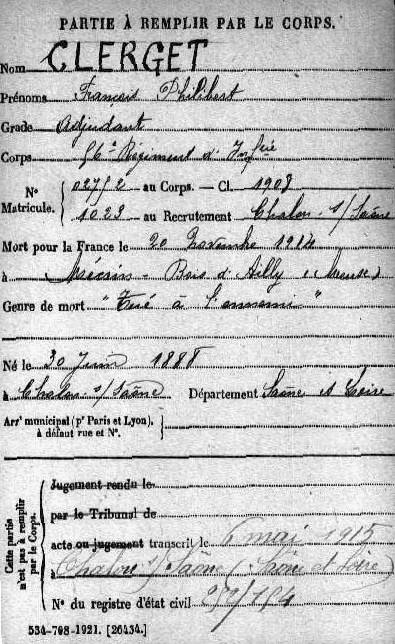 PARTIE À REMPLIR PAR LE CORPS.
Nom CLERGET
Prénoms François Philibert
Grade Adjudant
Corps 56e Régiment d'Infie
N° Matricule. 02752 au Corps. — Cl. 1908
1023 au Recrutement Chalon s/Saône
Mort pour la France le 20 novembre 1914
à Mécrin - Bois d'Ailly (Meuse)
Genre de mort "Tué à l'ennemi"
Né le 30 Juin 1888
à Chalon s/Saône Département Saône et Loire
Arrt municipal (pr Paris et Lyon), à défaut rue et N°.
Cette partie n'est pas à remplir par le Corps.
Jugement rendu le
par le Tribunal de
acte ou jugement transcrit le 6 mai 1915
à Chalon s/Saône (Saône et Loire)
N° du registre d'état civil
534-708-1921. [26434.]